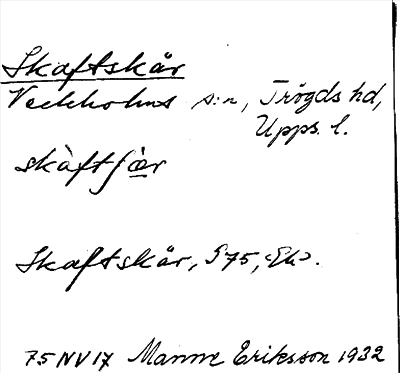 Skaftskär
Veckholms s:n, Trögds hd,
Upps. l.
skàftʃàr
Skaftskär, S 75, Ek.
75 NV 17 Manne Eriksson 1932